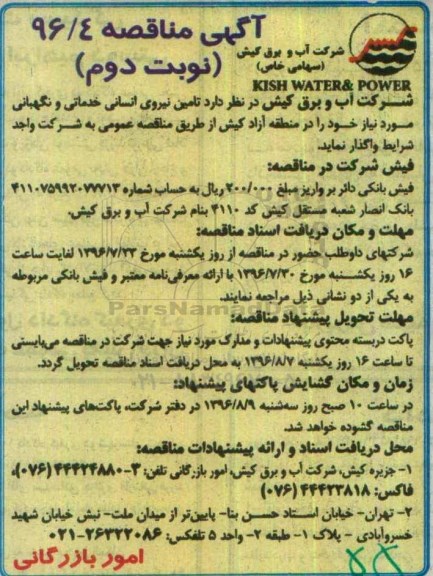 آگهی مناقصه ۹۶/۴
(نوبت دوم)
شرکت آب و برق کیش
(سهامی خاص)
KISH WATER & POWER
شــرکت آب و برق کیش در نظر دارد تامین نیروی انسانی خدماتی و نگهبانی
مورد نیاز خود را در منطقه آزاد کیش از طریق مناقصه عمومی به شرکت واجد
شرایط واگذار نماید.
فیش شرکت در مناقصه:
فیش بانکی دائر بر واریز مبلغ ۲۰۰/۰۰۰ ریال به حساب شماره ۴۱۱۰۷۵۹۹۲۰۷۷۷۱۳
بانک انصار شعبه مستقل کیش کد ۴۱۱۰ بنام شرکت آب و برق کیش.
مهلت و مکان دریافت اسناد مناقصه:
شرکتهای داوطلب حضور در مناقصه از روز یکشنبه مورخ ۱۳۹۶/۷/۲۳ لغایت ساعت
۱۶ روز یکشــنبه مورخ ۱۳۹۶/۷/۳۰ با ارائه معرفی‌نامه معتبر و فیش بانکی مربوطه
به یکی از دو نشانی ذیل مراجعه نمایند.
مهلت تحویل پیشنهاد مناقصه:
پاکت دربسته محتوی پیشنهادات و مدارک مورد نیاز جهت شرکت در مناقصه می‌بایستی
تا ساعت ۱۶ روز یکشنبه ۱۳۹۶/۸/۷ به محل دریافت اسناد مناقصه تحویل گردد.
زمان و مکان گشایش پاکتهای پیشنهاد:
در ساعت ۱۰ صبح روز سه‌شنبه ۱۳۹۶/۸/۹ در دفتر شرکت، پاکت‌های پیشنهاد این
مناقصه گشوده خواهد شد.
محل دریافت اسناد و ارائه پیشنهادات مناقصه:
۱- جزیره کیش، شرکت آب و برق کیش، امور بازرگانی تلفن: ۳-۴۴۴۲۴۸۸۰ (۰۷۶)،
فاکس: ۴۴۴۲۳۸۱۸ (۰۷۶)
۲- تهران- خیابان اسـتاد حسـن بنا- پایین‌تر از میدان ملت- نبش خیابان شهید
خسروآبادی - پلاک ۱- طبقه ۲- واحد ۵ تلفکس: ۲۶۳۲۲۰۸۶-۰۲۱
امور بازرگانی